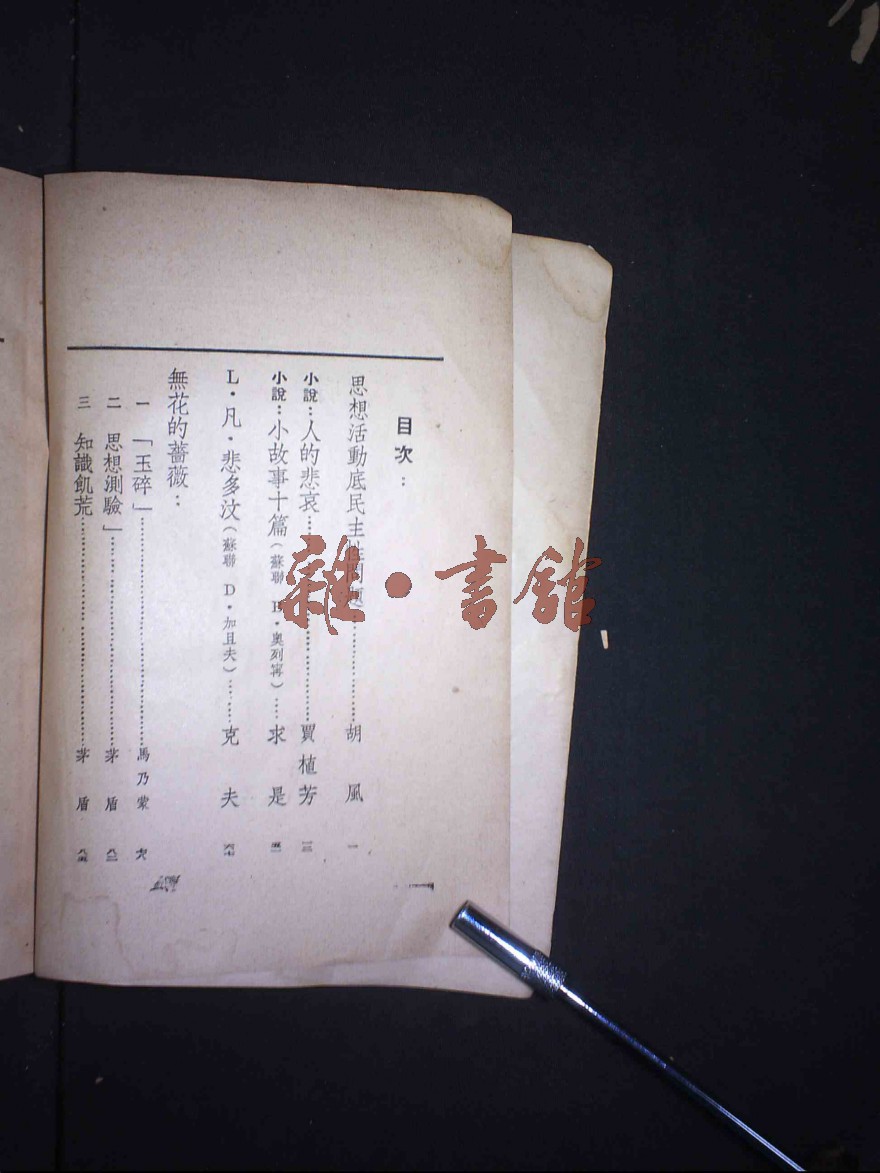 目次：
思想活動底民主性問題………胡風 一
小說：人的悲哀………賈植芳 一三
小說：小故事十篇（蘇聯 ・奧列寗）……求是 五一
L・凡・悲多汶（蘇聯 D・加且夫）……克夫 六七
無花的薔薇：
一 「玉碎」………馬乃蒙
二 思想測驗」………茅盾 八二
三 知識飢荒………茅盾 八五
雜・書館